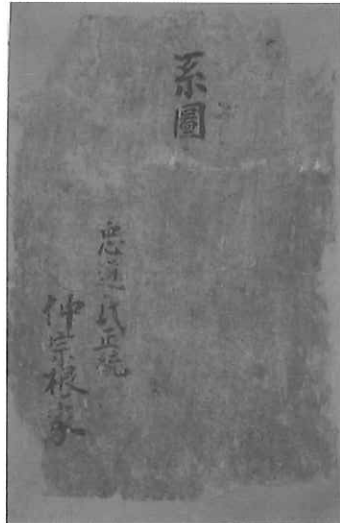 系圖
忠導氏正統
仲宗根家